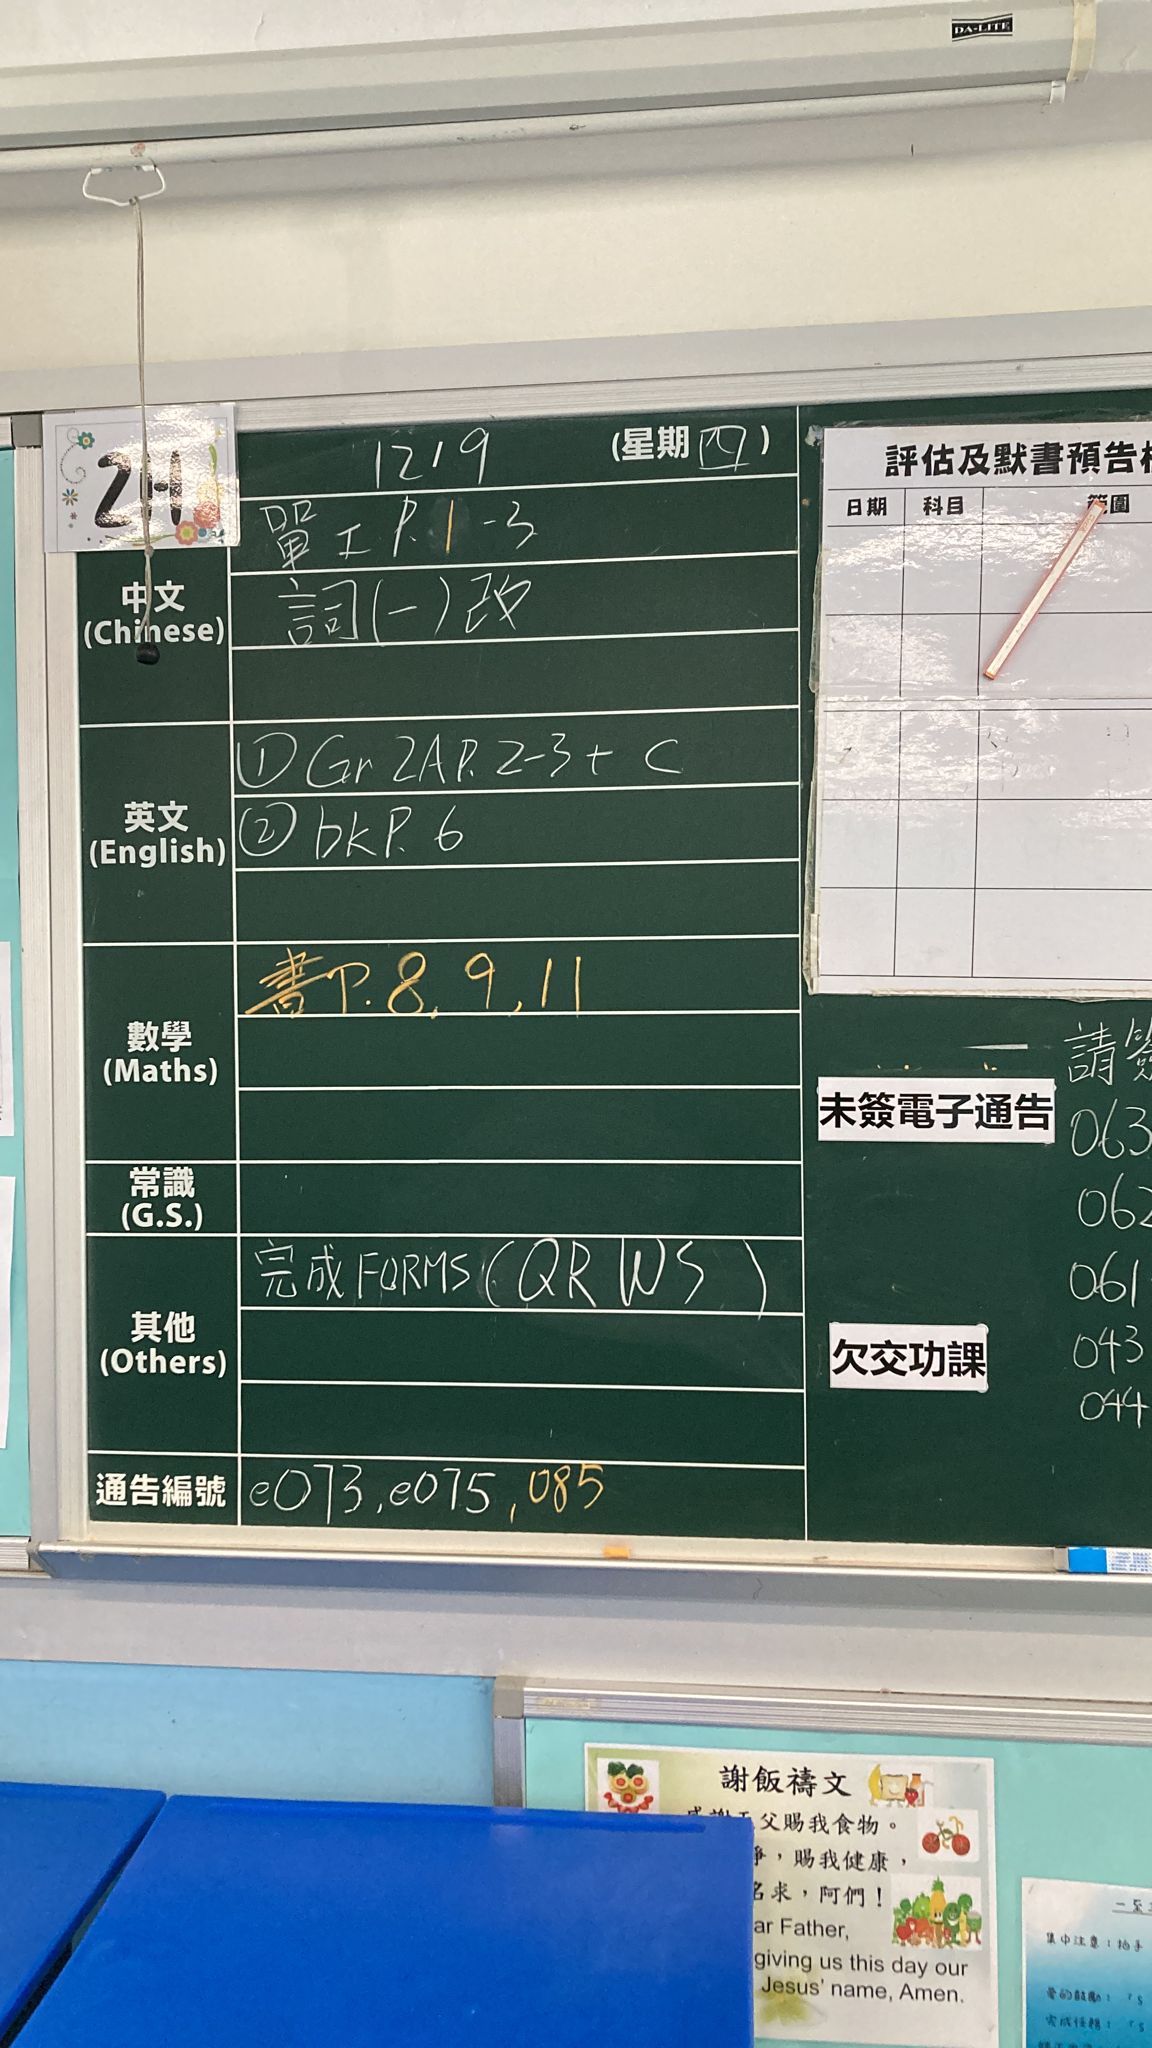 DA-LITE
2H
12/9
(星期四)
中文
(Chinese)
單工 P. 1-3
詞(一)改
英文
(English)
① Gr 2A P. 2-3 + C
② bk P. 6
數學
(Maths)
書 P. 8, 9, 11
常識
(G.S.)
其他
(Others)
完成 FORMS (QR WS )
通告編號
e073, e075, 085
評估及默書預告
日期 科目 範圍
請簽
未簽電子通告
063
062
061
043
044
欠交功課
謝飯禱文
父賜我食物。
,賜我健康,
名求,阿們!
ar Father,
giving us this day our
Jesus' name, Amen.
集中注意:拍手
完成任務:「S